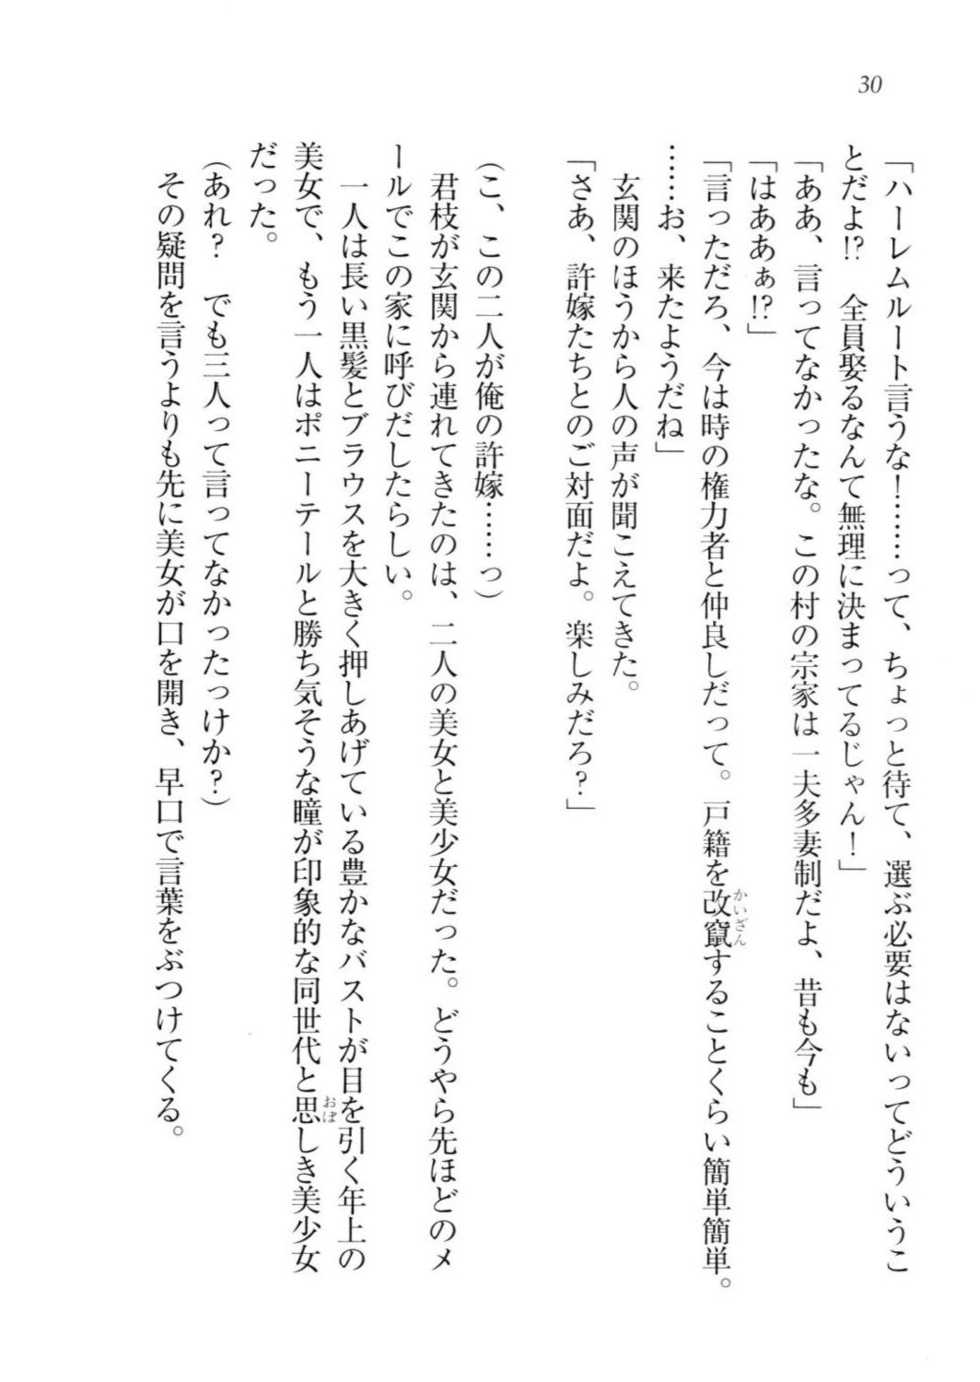 30
「ハーレムルート言うな！……って、ちょっと待て、選ぶ必要はないってどういうこ
とだよ!?　全員娶るなんて無理に決まってるじゃん！」
「ああ、言ってなかったな。この村の宗家は一夫多妻制だよ、昔も今も」
「はああぁ!?」
「言っただろ、今は時の権力者と仲良しだって。戸籍を改竄することくらい簡単簡単。
かいざん
……お、来たようだね」
　玄関のほうから人の声が聞こえてきた。
「さあ、許嫁たちとのご対面だよ。楽しみだろ？」
（こ、この二人が俺の許嫁……っ）
　君枝が玄関から連れてきたのは、二人の美女と美少女だった。どうやら先ほどのメ
ールでこの家に呼びだしたらしい。
　一人は長い黒髪とブラウスを大きく押しあげている豊かなバストが目を引く年上の
美女で、もう一人はポニーテールと勝ち気そうな瞳が印象的な同世代と思しき美少女
おぼ
だった。
（あれ？　でも三人って言ってなかったっけか？）
　その疑問を言うよりも先に美女が口を開き、早口で言葉をぶつけてくる。